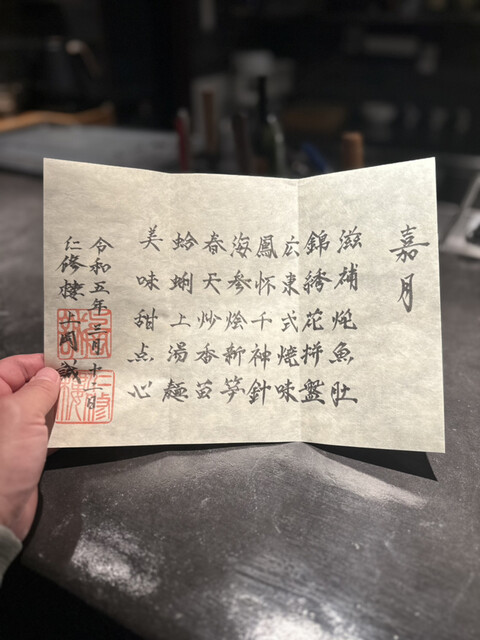 嘉月
滋補炖魚肚
錦繍花拼盤
広東式焼味
鳳怀千神針
海参燴新筍
春天炒香苗
蛤蜊上湯麺
美味甜点心
令和五年三月十二日
仁修樓 上岡誠